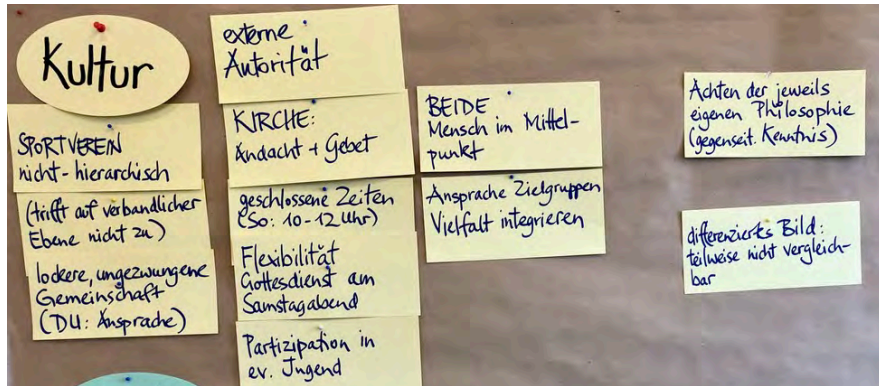 Kultur
SPORTVEREIN
nicht-hierarchisch
(trifft auf verbandlicher
Ebene nicht zu)
lockere, ungezwungene
Gemeinschaft
(DU: Ansprache)
externe
Autorität
KIRCHE:
Andacht + Gebet
geschlossene Zeiten
(So: 10-12 Uhr)
Flexibilität
Gottesdienst am
Samstagabend
Partizipation in
ev. Jugend
BEIDE
Mensch im Mittel-
punkt
Ansprache Zielgruppen
Vielfalt integrieren
Achten der jeweils
eigenen Philosophie
(gegenseit. Kenntnis)
differenziertes Bild:
teilweise nicht vergleich-
bar